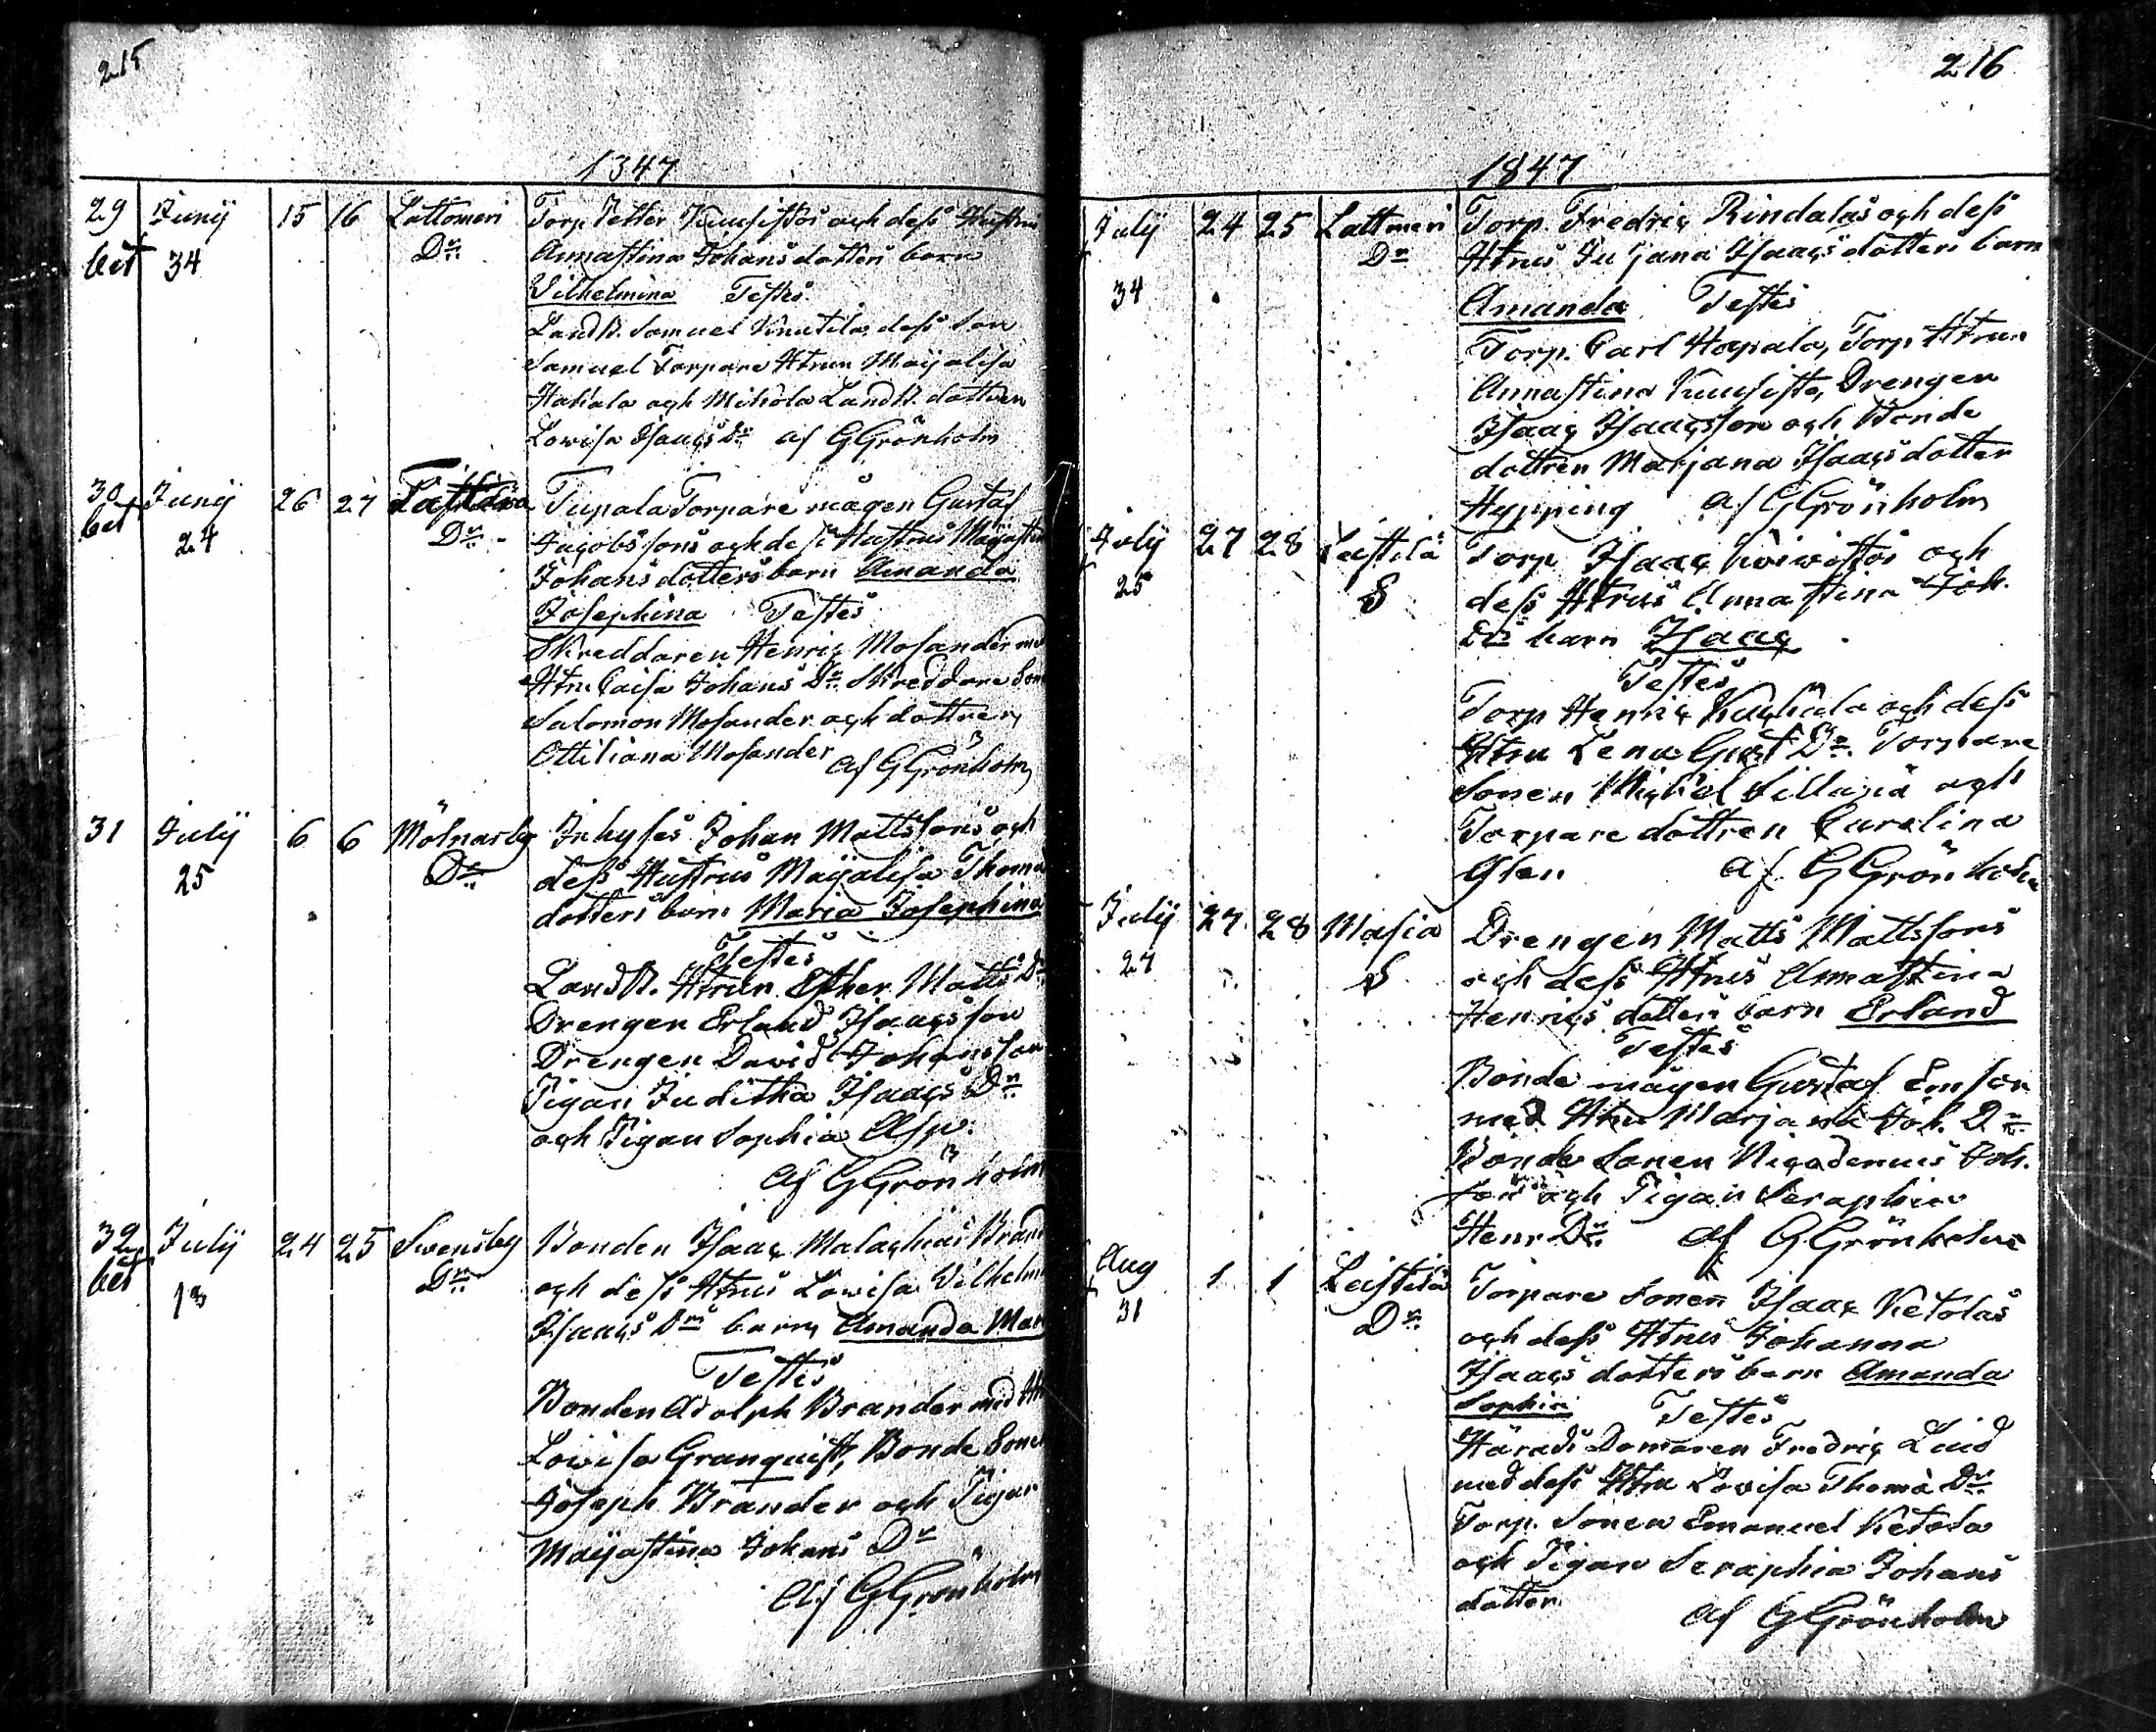 215
1847
29 Junij 15 16 Lattomeri Torp. Petter Kuusistos och dess Hustrus
bet 34 Dr. Annastina Johansdotters barn
Wilhelmina Testes
Landb. Samuel Knutila dess son
Samuel Torpare Htrun Maijalisa
Hakala och Mikola Landb. dottren
Lowisa Isaacs Dr. af G Grönholm
30 Junij 26 27 Tupala Torpare mågen Gustaf
bet 24 Dr. Jacobssons och dess Hustrus Majastin
Johansdotters barn Amanda
Josephina Testes
Skreddaren Henric Mosander med
Htru Caisa Johans Dr. Skreddare Son
Salomon Mosander och dottren
Ottiliana Mosander af G Grönholm
31 Julij 6 6 Molnarby Inhyses Johan Mattssons och
25 Dr. dess Hustrus Maijalisa Thoma
dotters barn Maria Josephina
Testes
Landb. Htrun Esther Matts Dr
Drengen Erland Isaacsson
Drengen David Johansson
Pigan Juditha Isaacs Dr.
och Pigan Sophia Asp.
af G Grönholm
32 Julij 24 25 Swensby Bonden Isaac Malachias Brand
bet 13 Dr. och dess Htrus Lowisa Wilhelm
Isaacs Drs barn Amanda Mar
Testes
Bonden Adolph Brander med Ht
Lowisa Granquist, Bonde Sonen
Joseph Brander och Pigan
Maijastina Johans Dr
af G Grönholm
216
1847
Julij 24 25 Lattmeri Torp. Fredric Rindalas och dess
Dr. Htrus Juljana Isaacsdotters barn
34 Amanda Testes
Torp. Carl Hapala, Torp. Htrun
Annastina Kuusisto, Drengen
Isaac Isaacsson och Bonde
dottren Marjana Isaacsdotter
Hypping af G Grönholm
Julij 27 28 Leistilä Torp. Isaac Koiwistos och
25 S dess Htrus Annastina Joh.
Drs barn Isaac
Testes
Torp Henric Kuckula och dess
Htru Lena Gust Dr. Torpare
Sonen Michel Sillana och
Torpare dottren Carolina
Glen af G Grönholm
Julij 27 28 Masia Drengen Matts Mattssons
27 S och dess Htrus Annastina
Henricsdotters barn Erland
Testes
Bonde mågen Gustaf Em son
med Htru Marjana Joh. Dr.
Bonde Sonen Nicodemus Joh.
son och Pigan Seraphia
Henr. Dr. af G Grönholm
Aug 1 1 Leistilä Torpare Sonen Isaac Ketolas
31 Dr. och dess Htrus Johanna
Isaacs dotters barn Amanda
Sophia Testes
Härads Domaren Fredric Lind
med dess Htru Lovisa Thoma Dr.
Torp. Sonen Emanuel Ketola
och Pigan Seraphia Johans
dotter af G Grönholm